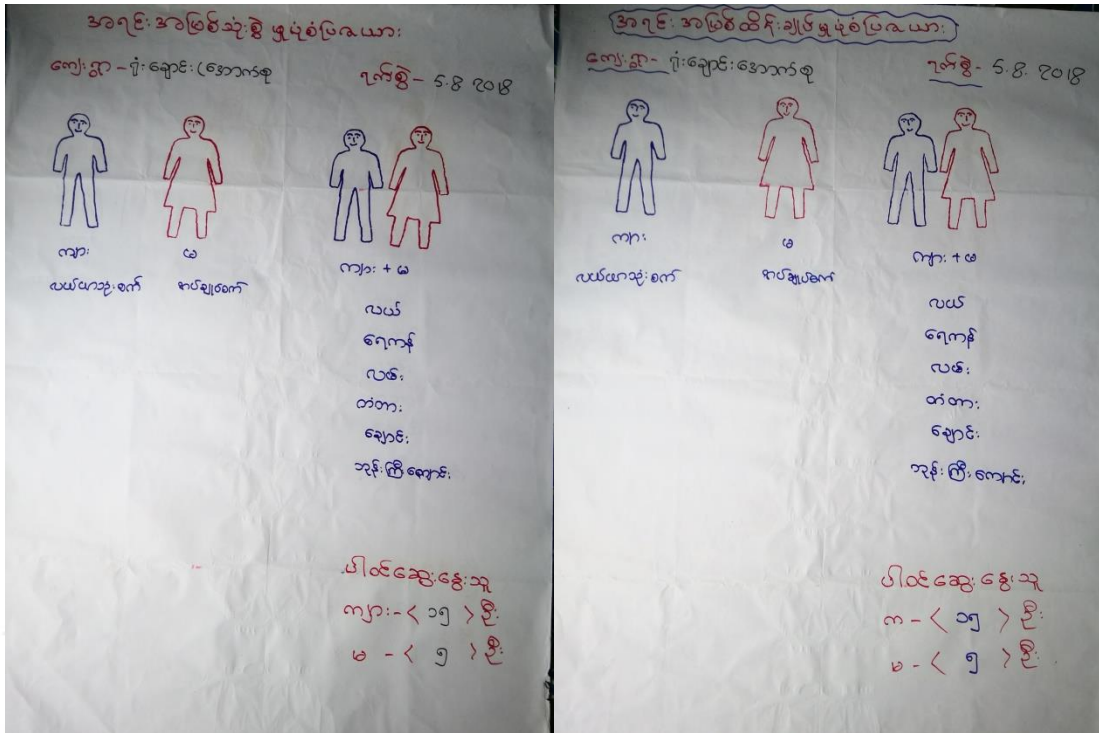 အရင်းအမြစ်သုံးစွဲမှုပုံစံပြဇယား
ကျေးရွာ - ရုံးချောင်း(အောက်စု
ရက်စွဲ - 5.8 2018
ကျား
မ
ကျား + မ
လယ်ယာသုံးစက်
စာပ်ချုပ်စက်
လယ်
ရေကန်
လမ်း
တံတား
ချောင်း
ဘုန်းကြီးကျောင်း
ပါဝင်ဆွေးနွေးသူ
ကျား - < ၁၅ > ဦး
မ - < ၅ > ဦး
အရင်းအမြစ်ထိန်းချုပ်မှုပုံစံပြဇယား
ကျေးရွာ - ရုံးချောင်းအောက်စု
ရက်စွဲ - 5.8. 2018
ကျား
မ
ကျား + မ
လယ်ယာသုံးစက်
စာပ်ချုပ်စက်
လယ်
ရေကန်
လမ်း
တံတား
ချောင်း
ဘုန်းကြီးကျောင်း
ပါဝင်ဆွေးနွေးသူ
က - < ၁၅ > ဦး
မ - < ၅ > ဦး